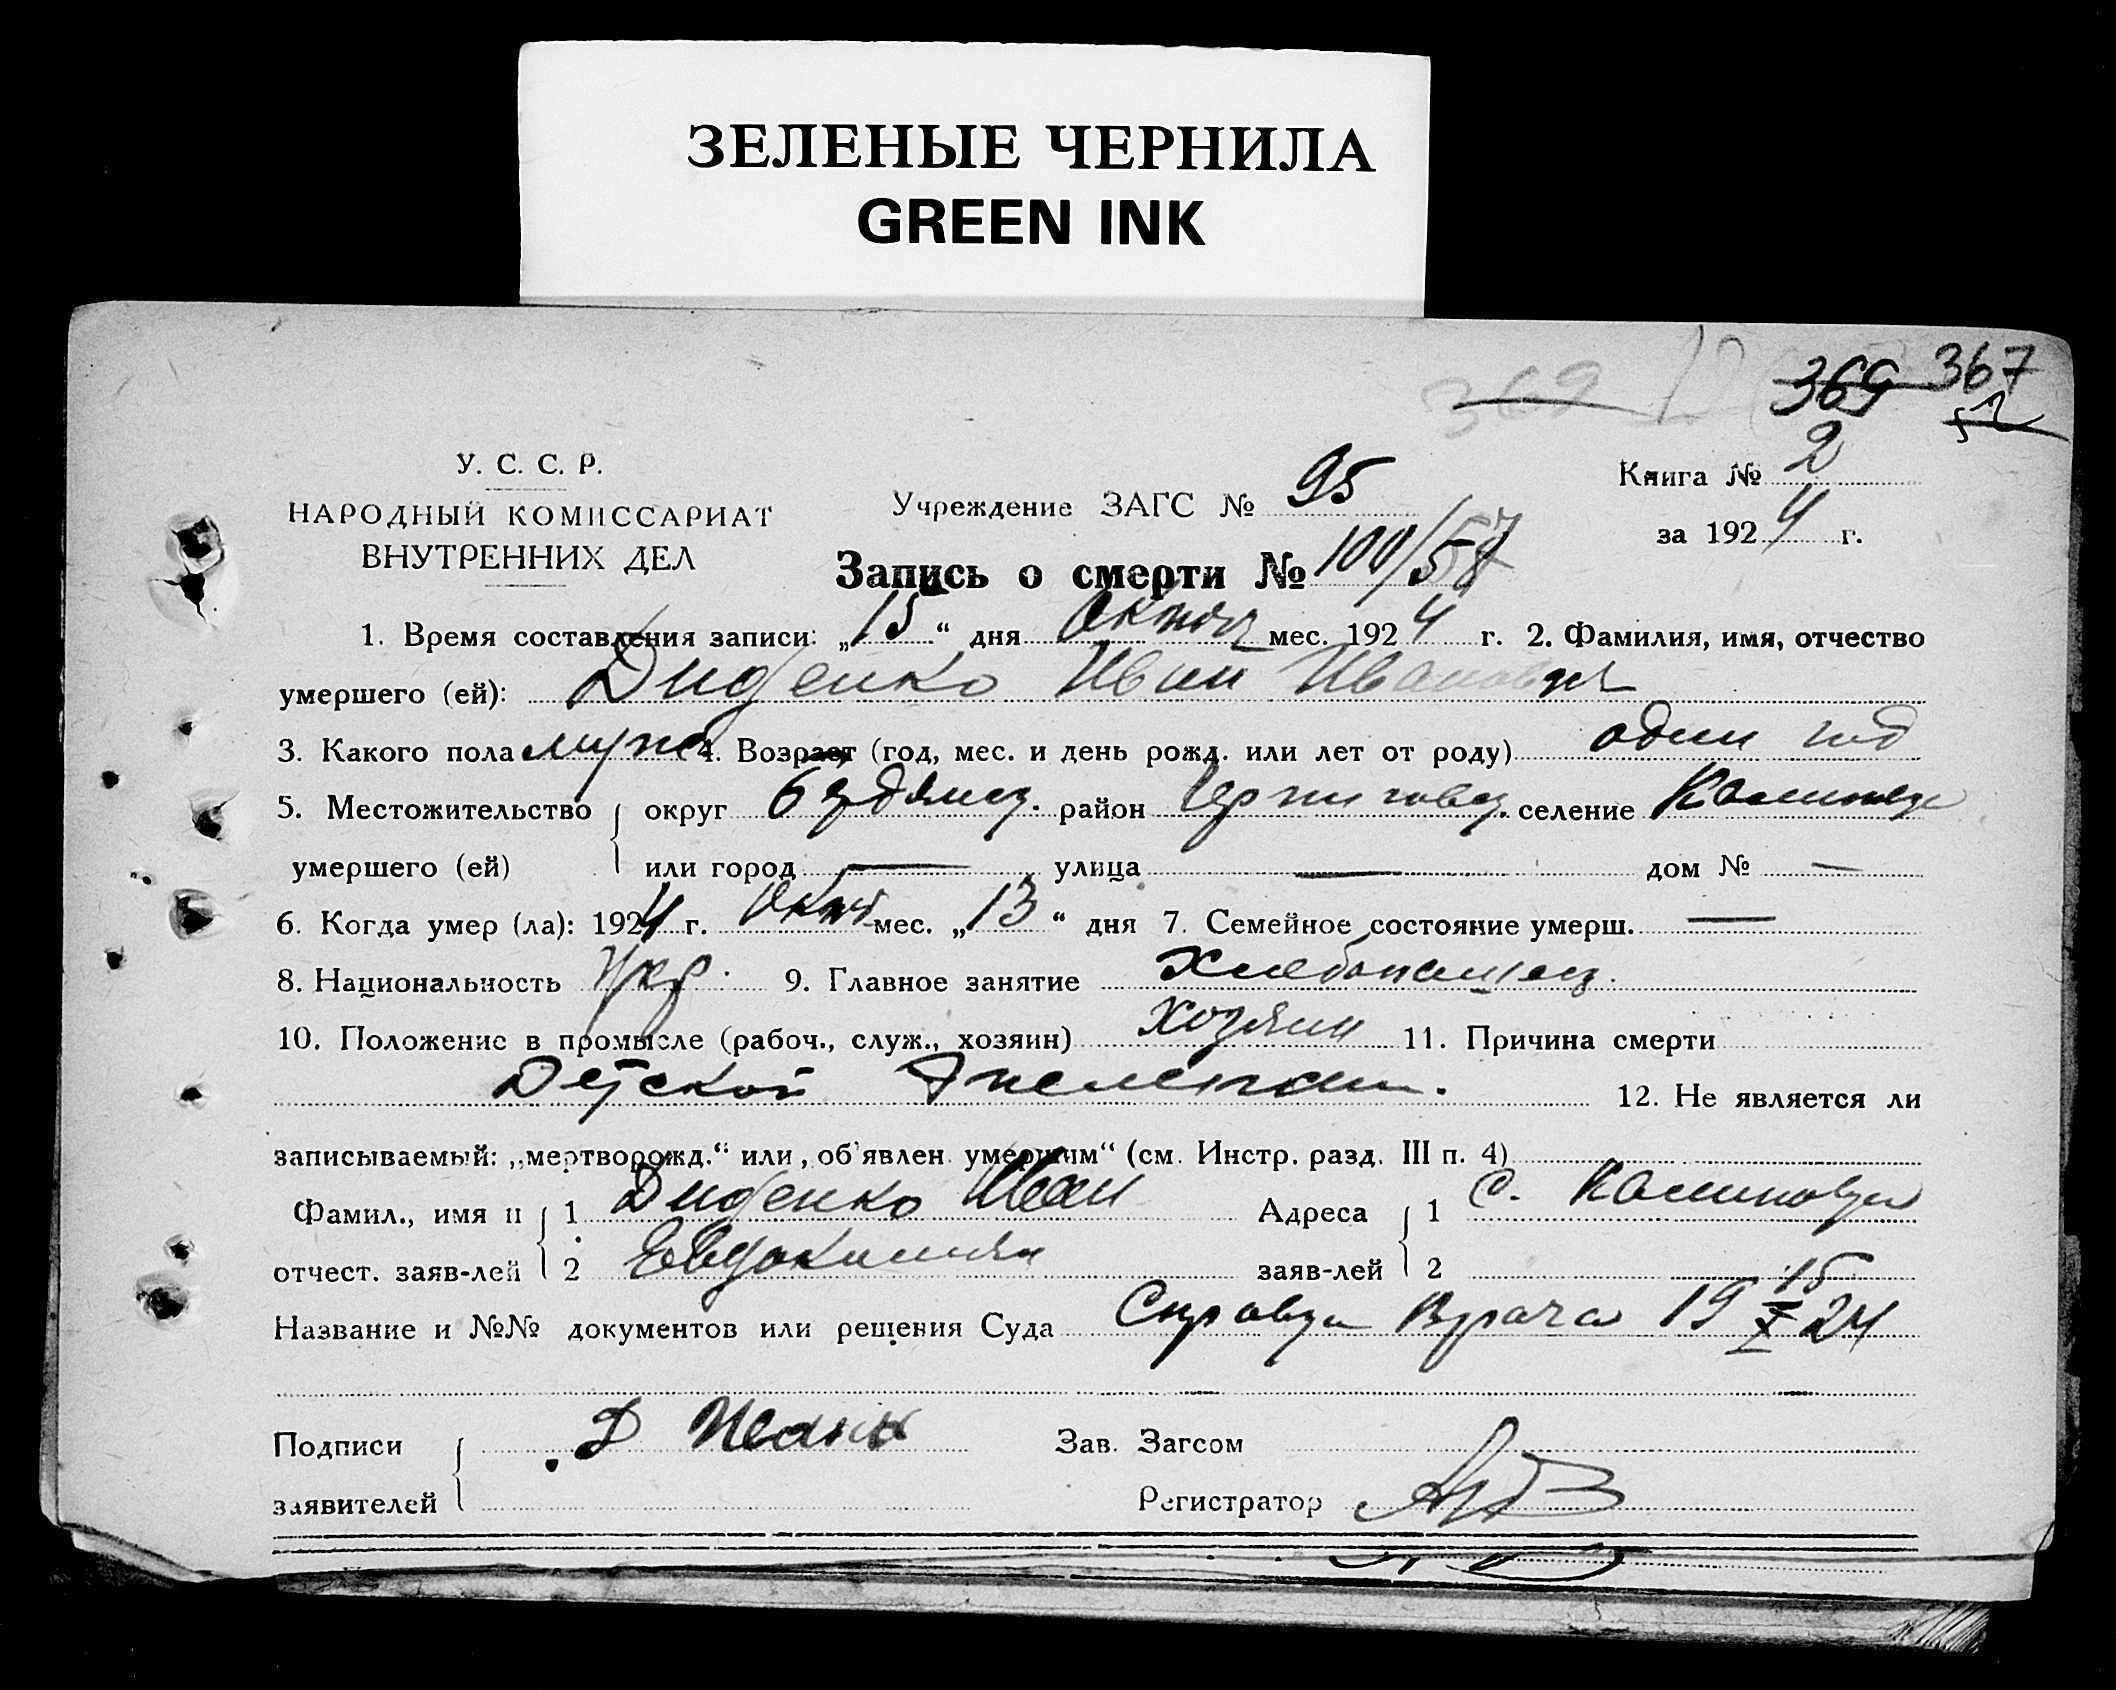 ЗЕЛЕНЫЕ ЧЕРНИЛА
GREEN INK
369 369 367
У. С. С. Р.
НАРОДНЫЙ КОМИССАРИАТ
ВНУТРЕННИХ ДЕЛ
Учреждение ЗАГС № 95
Книга № 2
за 1924 г.
Запись о смерти № 100/57
1. Время составления записи: „15“ дня Октяб мес. 1924 г. 2. Фамилия, имя, отчество
умершего (ей): Диденко Иван Иванович
3. Какого пола муж 4. Возраст (год, мес. и день рожд. или лет от роду) один год
5. Местожительство округ район селение
умершего (ей) или город — улица — дом № —
6. Когда умер (ла): 1924 г. Окт мес. „13“ дня 7. Семейное состояние умерш. —
8. Национальность Укр. 9. Главное занятие
10. Положение в промысле (рабоч., служ., хозяин) хозяин 11. Причина смерти
Детской
12. Не является ли
записываемый: „мертворожд.“ или „об'явлен умершим“ (см. Инстр. разд. III п. 4)
Фамил., имя и 1 Диденко Иван Адреса 1 с.
отчест. заяв-лей 2 заяв-лей 2
Название и №№ документов или решения Суда Справка Врача 19 15/X 24
Подписи Д Иван Зав. Загсом
заявителей Регистратор